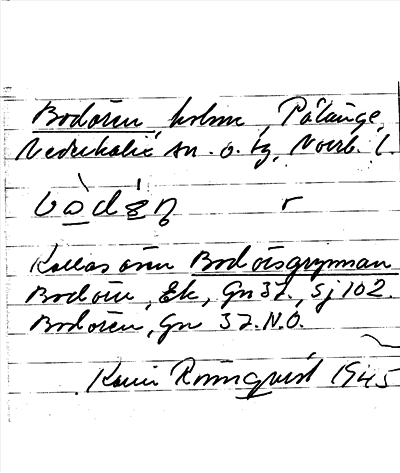 Bodören, holme, Pålänge,
Nederkalix sn. o. tg, Norrb. l.
r
Kallas även Bodörsgrynnan
Bodörn, Ek, Gn 37, Sj 102.
Bodören, Gn 37.N.O.
Karin Rönnqvist 1945